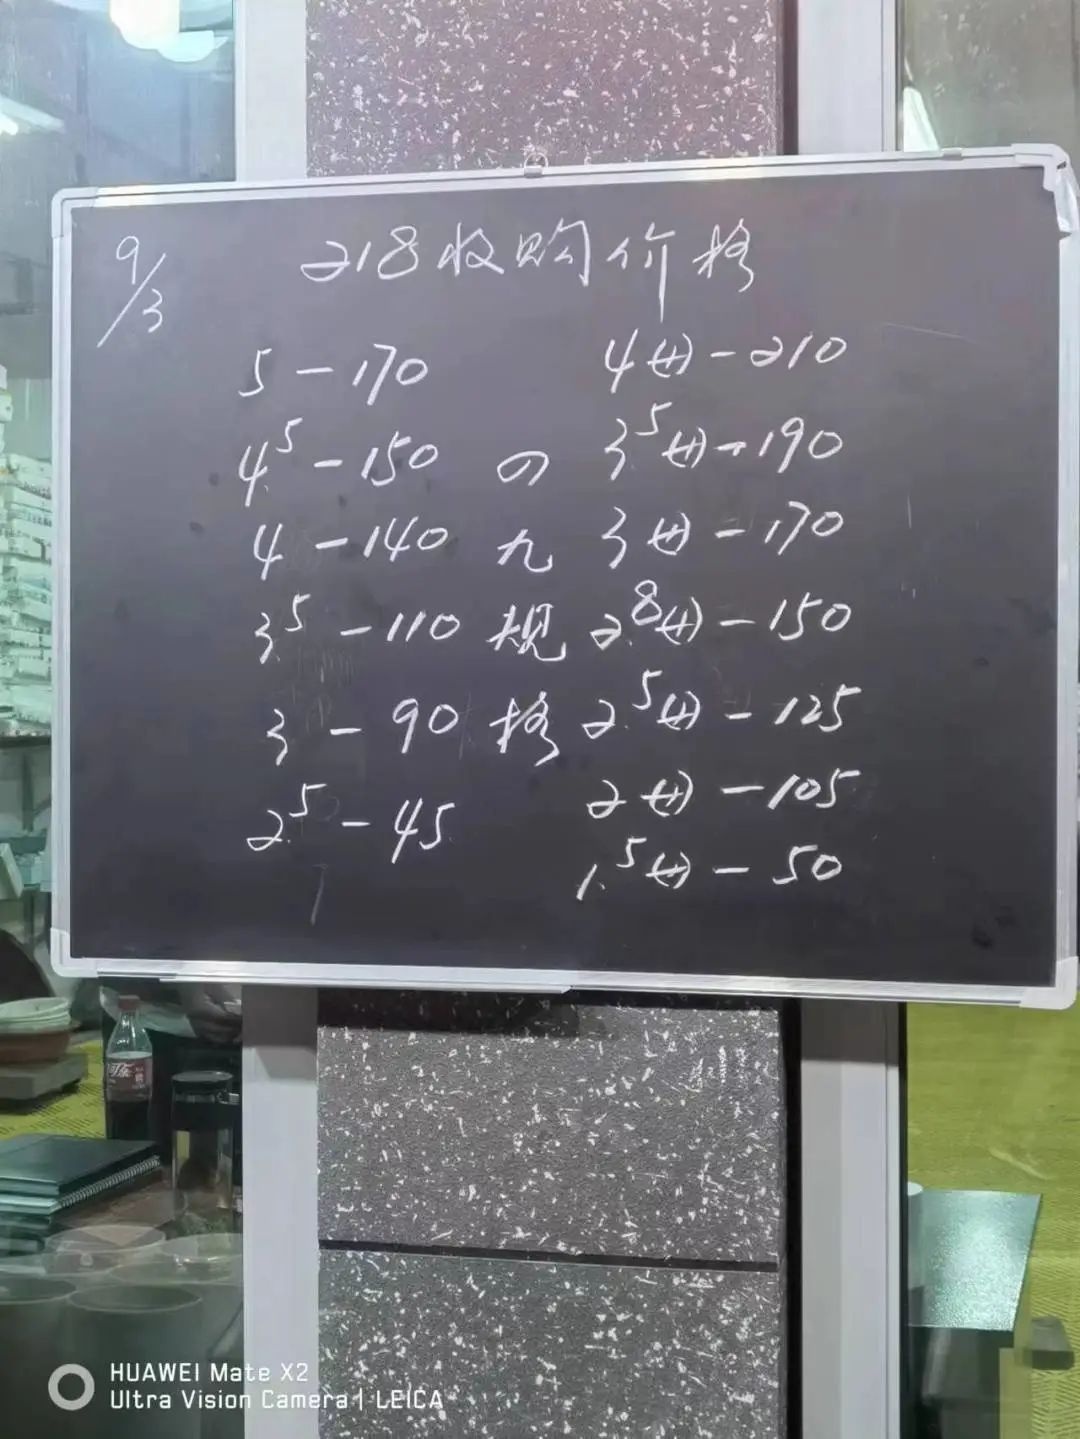 9/3
218收购价格
5-170
4.5-150
4-140
3.5-110
3-90
2.5-45
の
九
规
格
4母-210
3.5母-190
3母-170
2.8母-150
2.5母-125
2母-105
1.5母-50
HUAWEI Mate X2
Ultra Vision Camera | LEICA